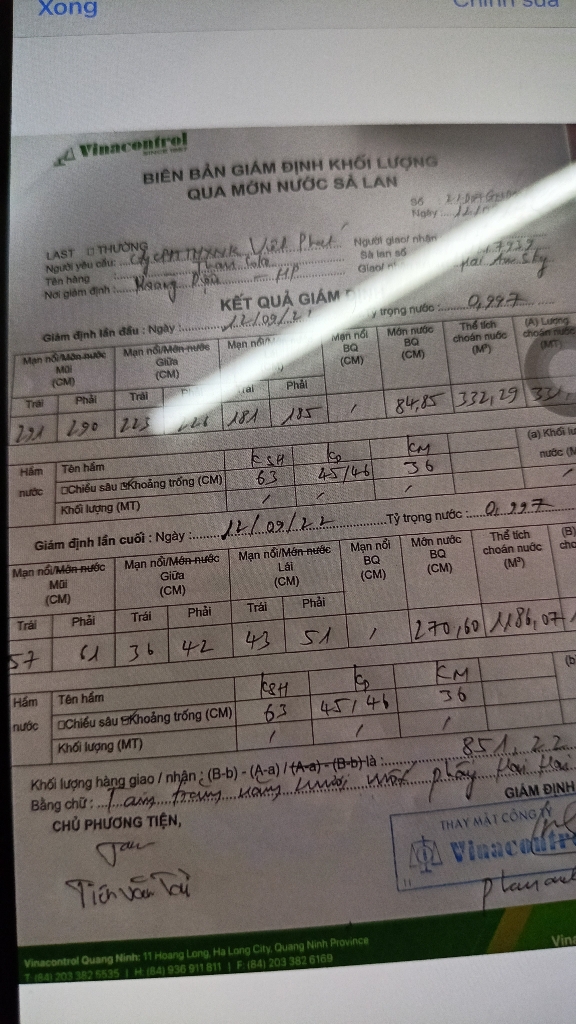 Xong
Chỉnh sửa
Vinacontrol
BIÊN BẢN GIÁM ĐỊNH KHỐI LƯỢNG
QUA MỚN NƯỚC SÀ LAN
Số
Ngày
LAST □ THƯỜNG
Người yêu cầu: Cty CPTM XNK Việt Phát Người giao/ nhận
Tên hàng Sà lan số
Nơi giám định: Hoàng Diệu - HP Giao/
KẾT QUẢ GIÁM
Giám định lần đầu: Ngày: 12/09/22 trọng nước: 0,997
Mạn nổi/Mớn nước Mũi (CM) Mạn nổi/Mớn nước Giữa (CM) Mạn nổi/ Mạn nổi BQ (CM) Mớn nước BQ (CM) Thể tích choán nước (M³) (A) Lượng choán nước (MT)
Trái Phải Trái Phải
291 290 223 226 181 185 / 84,85 332,29 331,
Hầm nước Tên hầm KSH KP KM (a) Khối
□Chiều sâu ☑Khoảng trống (CM) 63 45/46 36 nước
Khối lượng (MT) / / /
Giám định lần cuối: Ngày: 12/09/22 Tỷ trọng nước: 0,997
Mạn nổi/Mớn nước Mũi (CM) Mạn nổi/Mớn nước Giữa (CM) Mạn nổi/Mớn nước Lái (CM) Mạn nổi BQ (CM) Mớn nước BQ (CM) Thể tích choán nước (M³) (B)
Trái Phải Trái Phải Trái Phải
57 61 36 42 43 51 / 270,60 1186,07
Hầm nước Tên hầm KSH KP KM (b)
□Chiều sâu ☑Khoảng trống (CM) 63 45/46 36
Khối lượng (MT) / / /
Khối lượng hàng giao / nhận: (B-b) - (A-a) / (A-a) - (B-b) là: 851,22
Bằng chữ: Tám trăm năm mươi mốt phẩy Hai Hai
CHỦ PHƯƠNG TIỆN, GIÁM ĐỊNH
THAY MẶT CÔNG TY
Vinacontr
Vinacontrol Quang Ninh: 11 Hoang Long, Ha Long City, Quang Ninh Province
T: (84) 203 382 5535 | H: (84) 936 911 811 | F: (84) 203 382 6169
Vina